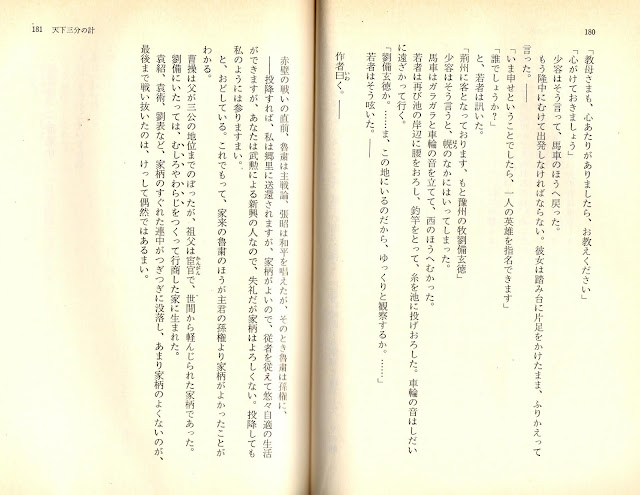 180
「教母さまも、心あたりがありましたら、お教えください」
「心がけておきましょう」
少容はそう言って、馬車のほうへ戻った。
もう隆中にむけて出発しなければならない。彼女は踏み台に片足をかけたまま、ふりかえって
言った。――
「いま申せということでしたら、一人の英雄を指名できます」
「誰でしょうか？」
と、若者は訊いた。
「荊州に客となっております、もと豫州の牧劉備玄徳」
少容はそう言うと、幌のなかにはいってしまった。
馬車はガラガラと車輪の音を立てて、西のほうへむかった。
若者は再び池の岸辺に腰をおろし、釣竿をとって、糸を池に投げおろした。車輪の音はしだい
に遠ざかって行く。
「劉備玄徳か。……ま、この地にいるのだから、ゆっくりと観察するか。……」
若者はそう呟いた。――
作者曰く。――
181 天下三分の計
赤壁の戦いの直前、魯粛は主戦論、張昭は和平を唱えたが、そのとき魯粛は孫権に、
――投降すれば、私は郷里に送還されますが、家柄がよいので、従者を従えて悠々自適の生活
ができますが、あなたは武勲による新興の人なので、失礼だが家柄はよろしくない。投降しても
私のようには参りますまい。
と、おどしている。これでもって、家来の魯粛のほうが主君の孫権より家柄がよかったことが
わかる。
曹操は父が三公の地位までのぼったが、祖父は宦官で、世間から軽んじられた家柄であった。
劉備にいたっては、むしろやわらじをつくって行商した家に生まれた。
袁紹、袁術、劉表など、家柄のすぐれた連中がつぎつぎに没落し、あまり家柄のよくないのが、
最後まで戦い抜いたのは、けっして偶然ではあるまい。